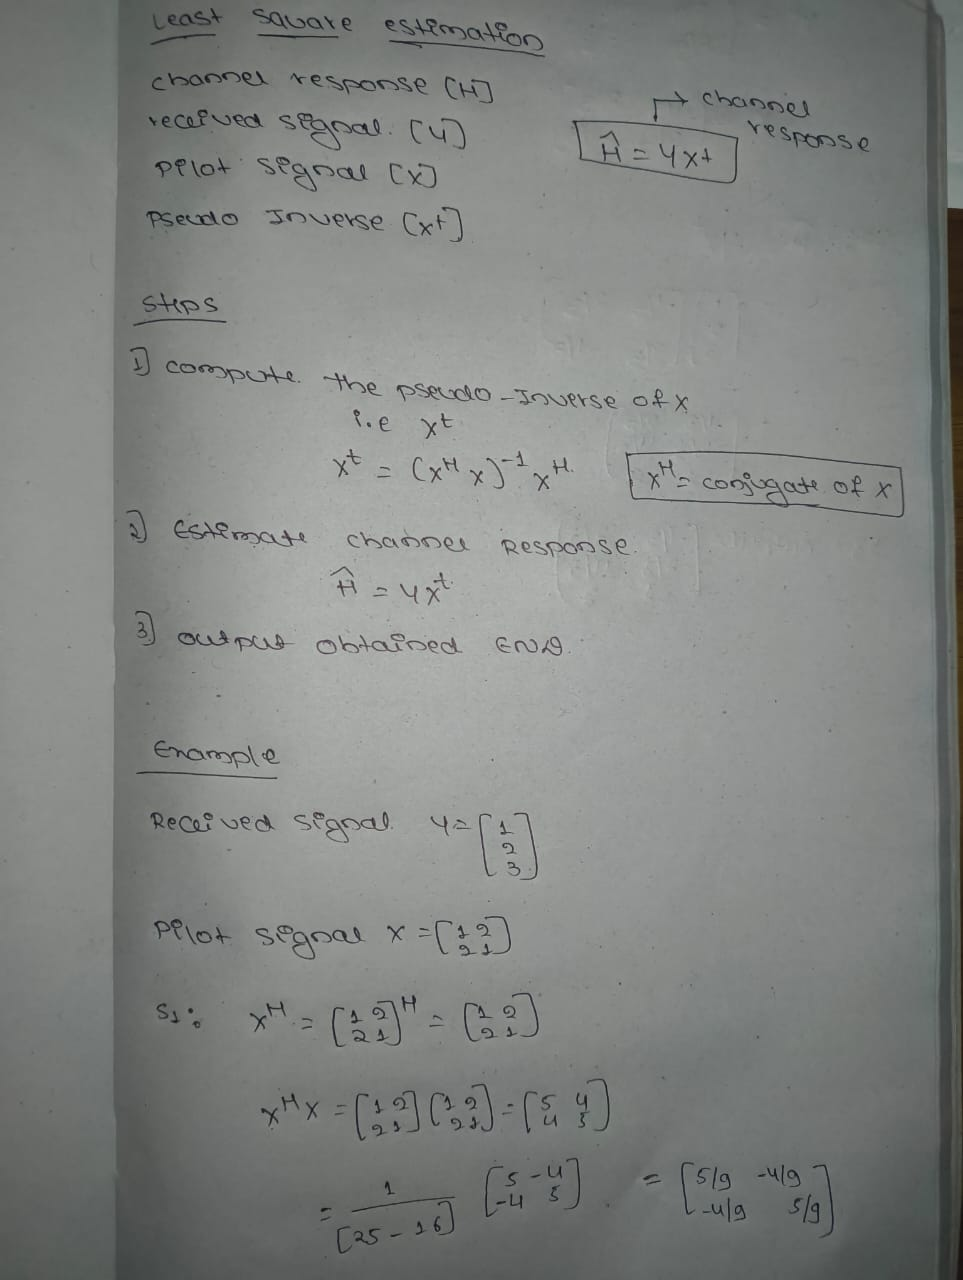 Least Square estimation
channel response (H)
received signal. (Y)
pilot signal (X)
Pseudo Inverse (X†)
→ channel response
Ĥ = YX†
Steps
1) compute the pseudo-Inverse of X
i.e X†
X† = (X^H X)^-1 X^H
X^H = conjugate of X
2) Estimate channel Response.
Ĥ = YX†
3) output obtained END.
Example
Received signal. Y = [1; 2; 3]
Pilot signal X = [1 2; 2 1]
S1: X^H = [1 2; 2 1]^H = [1 2; 2 1]
X^H X = [1 2; 2 1] [1 2; 2 1] = [5 4; 4 5]
= 1/[25-16] [5 -4; -4 5] = [5/9 -4/9; -4/9 5/9]